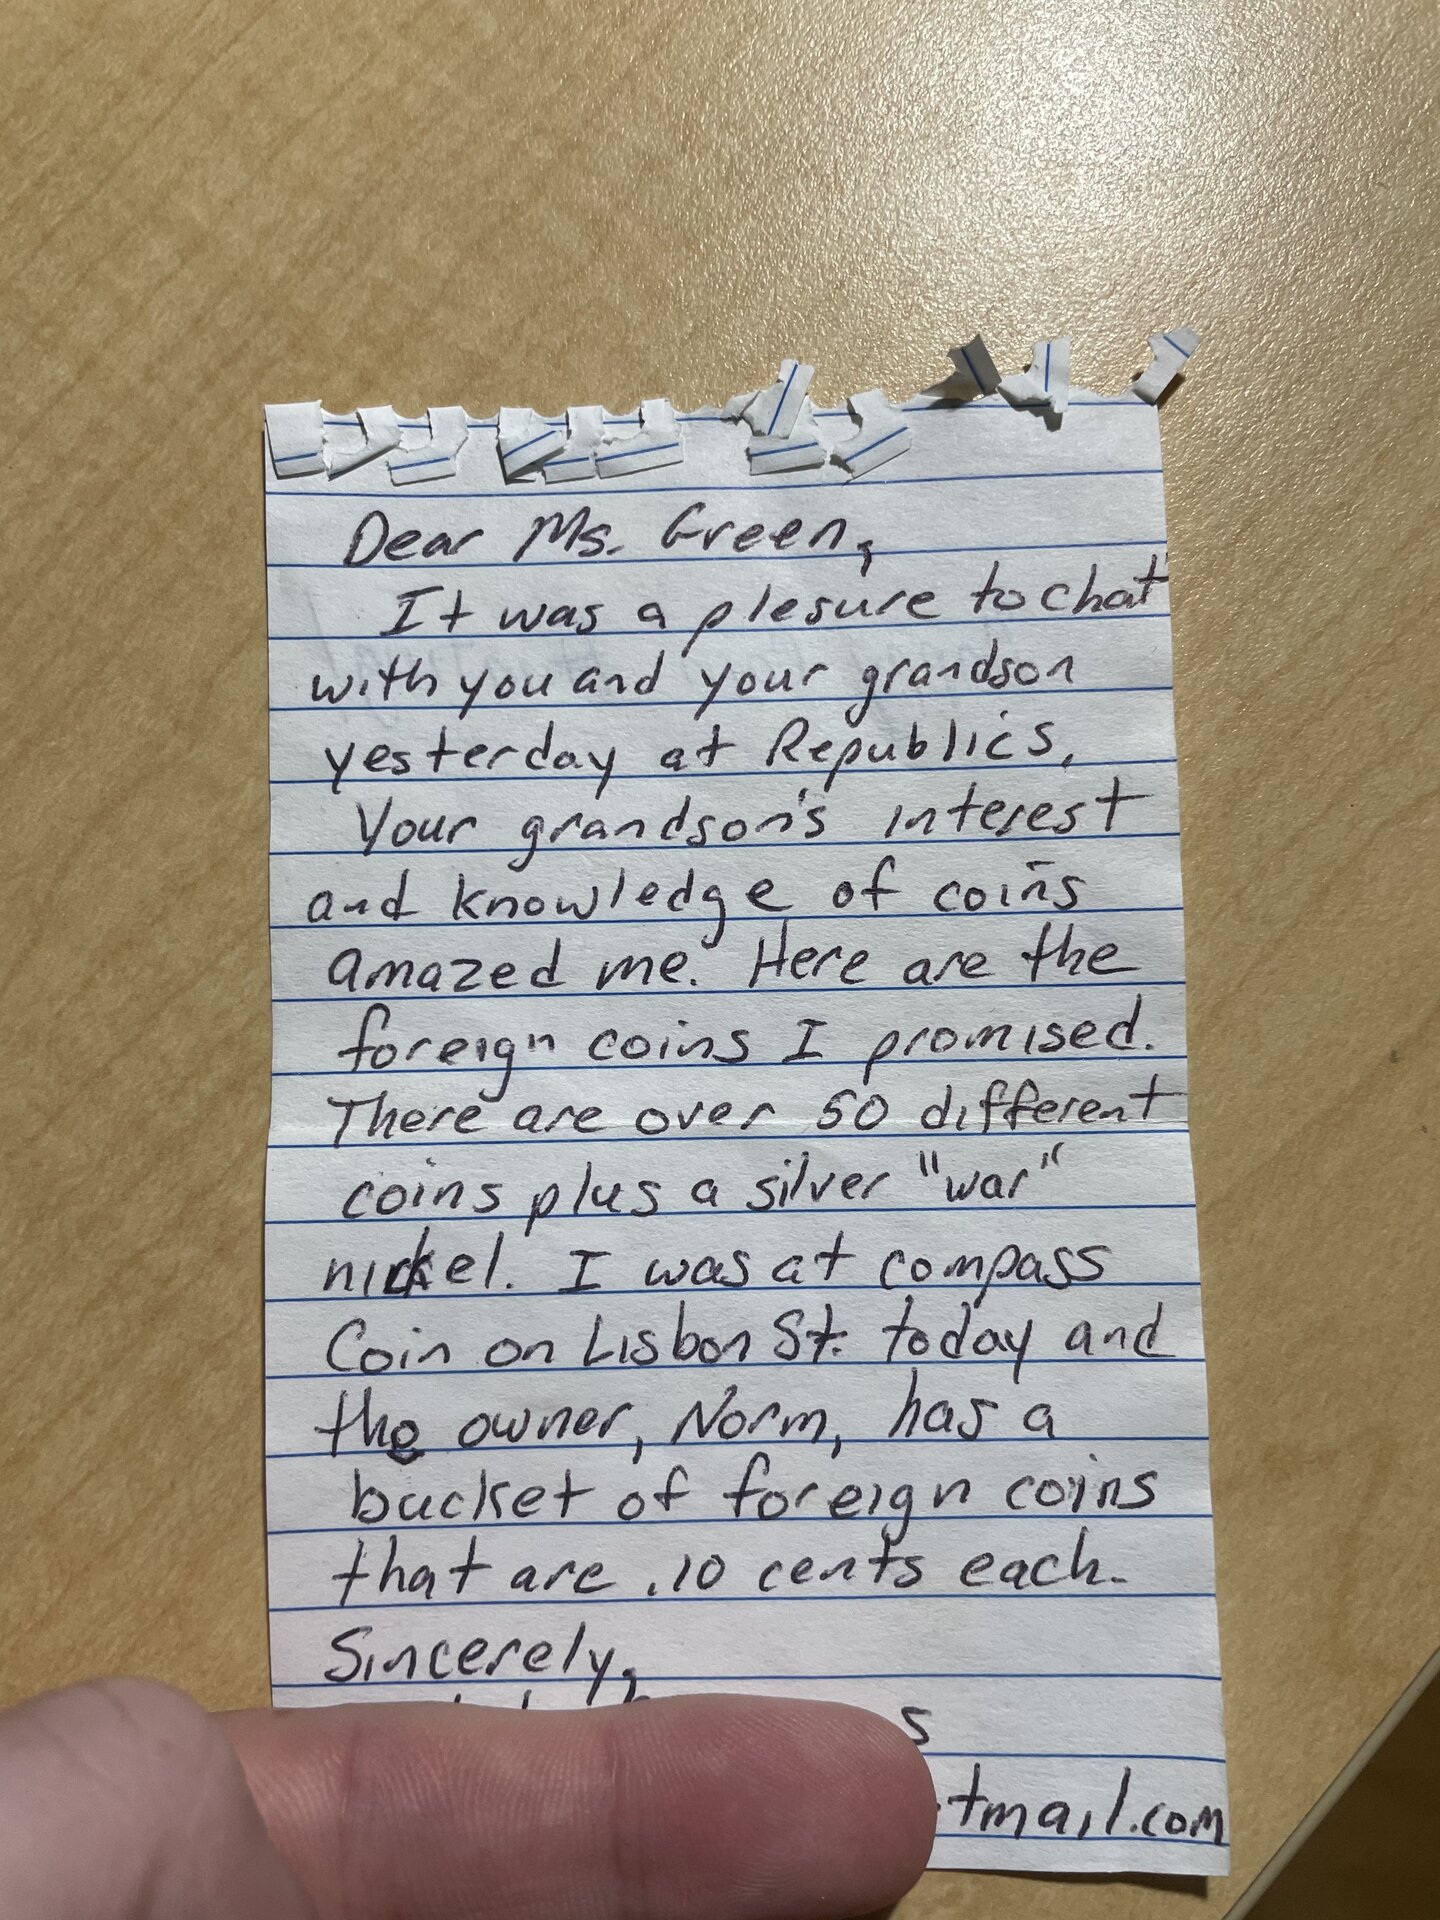 Dear Ms. Green,
It was a plesure to chat
with you and your grandson
yesterday at Republic's.
Your grandson's interest
and knowledge of coins
amazed me. Here are the
foreign coins I promised.
There are over 50 different
coins plus a silver "war"
nickel. I was at compass
Coin on Lisbon St. today and
the owner, Norm, has a
bucket of foreign coins
that are .10 cents each.
Sincerely,
s
tmail.com